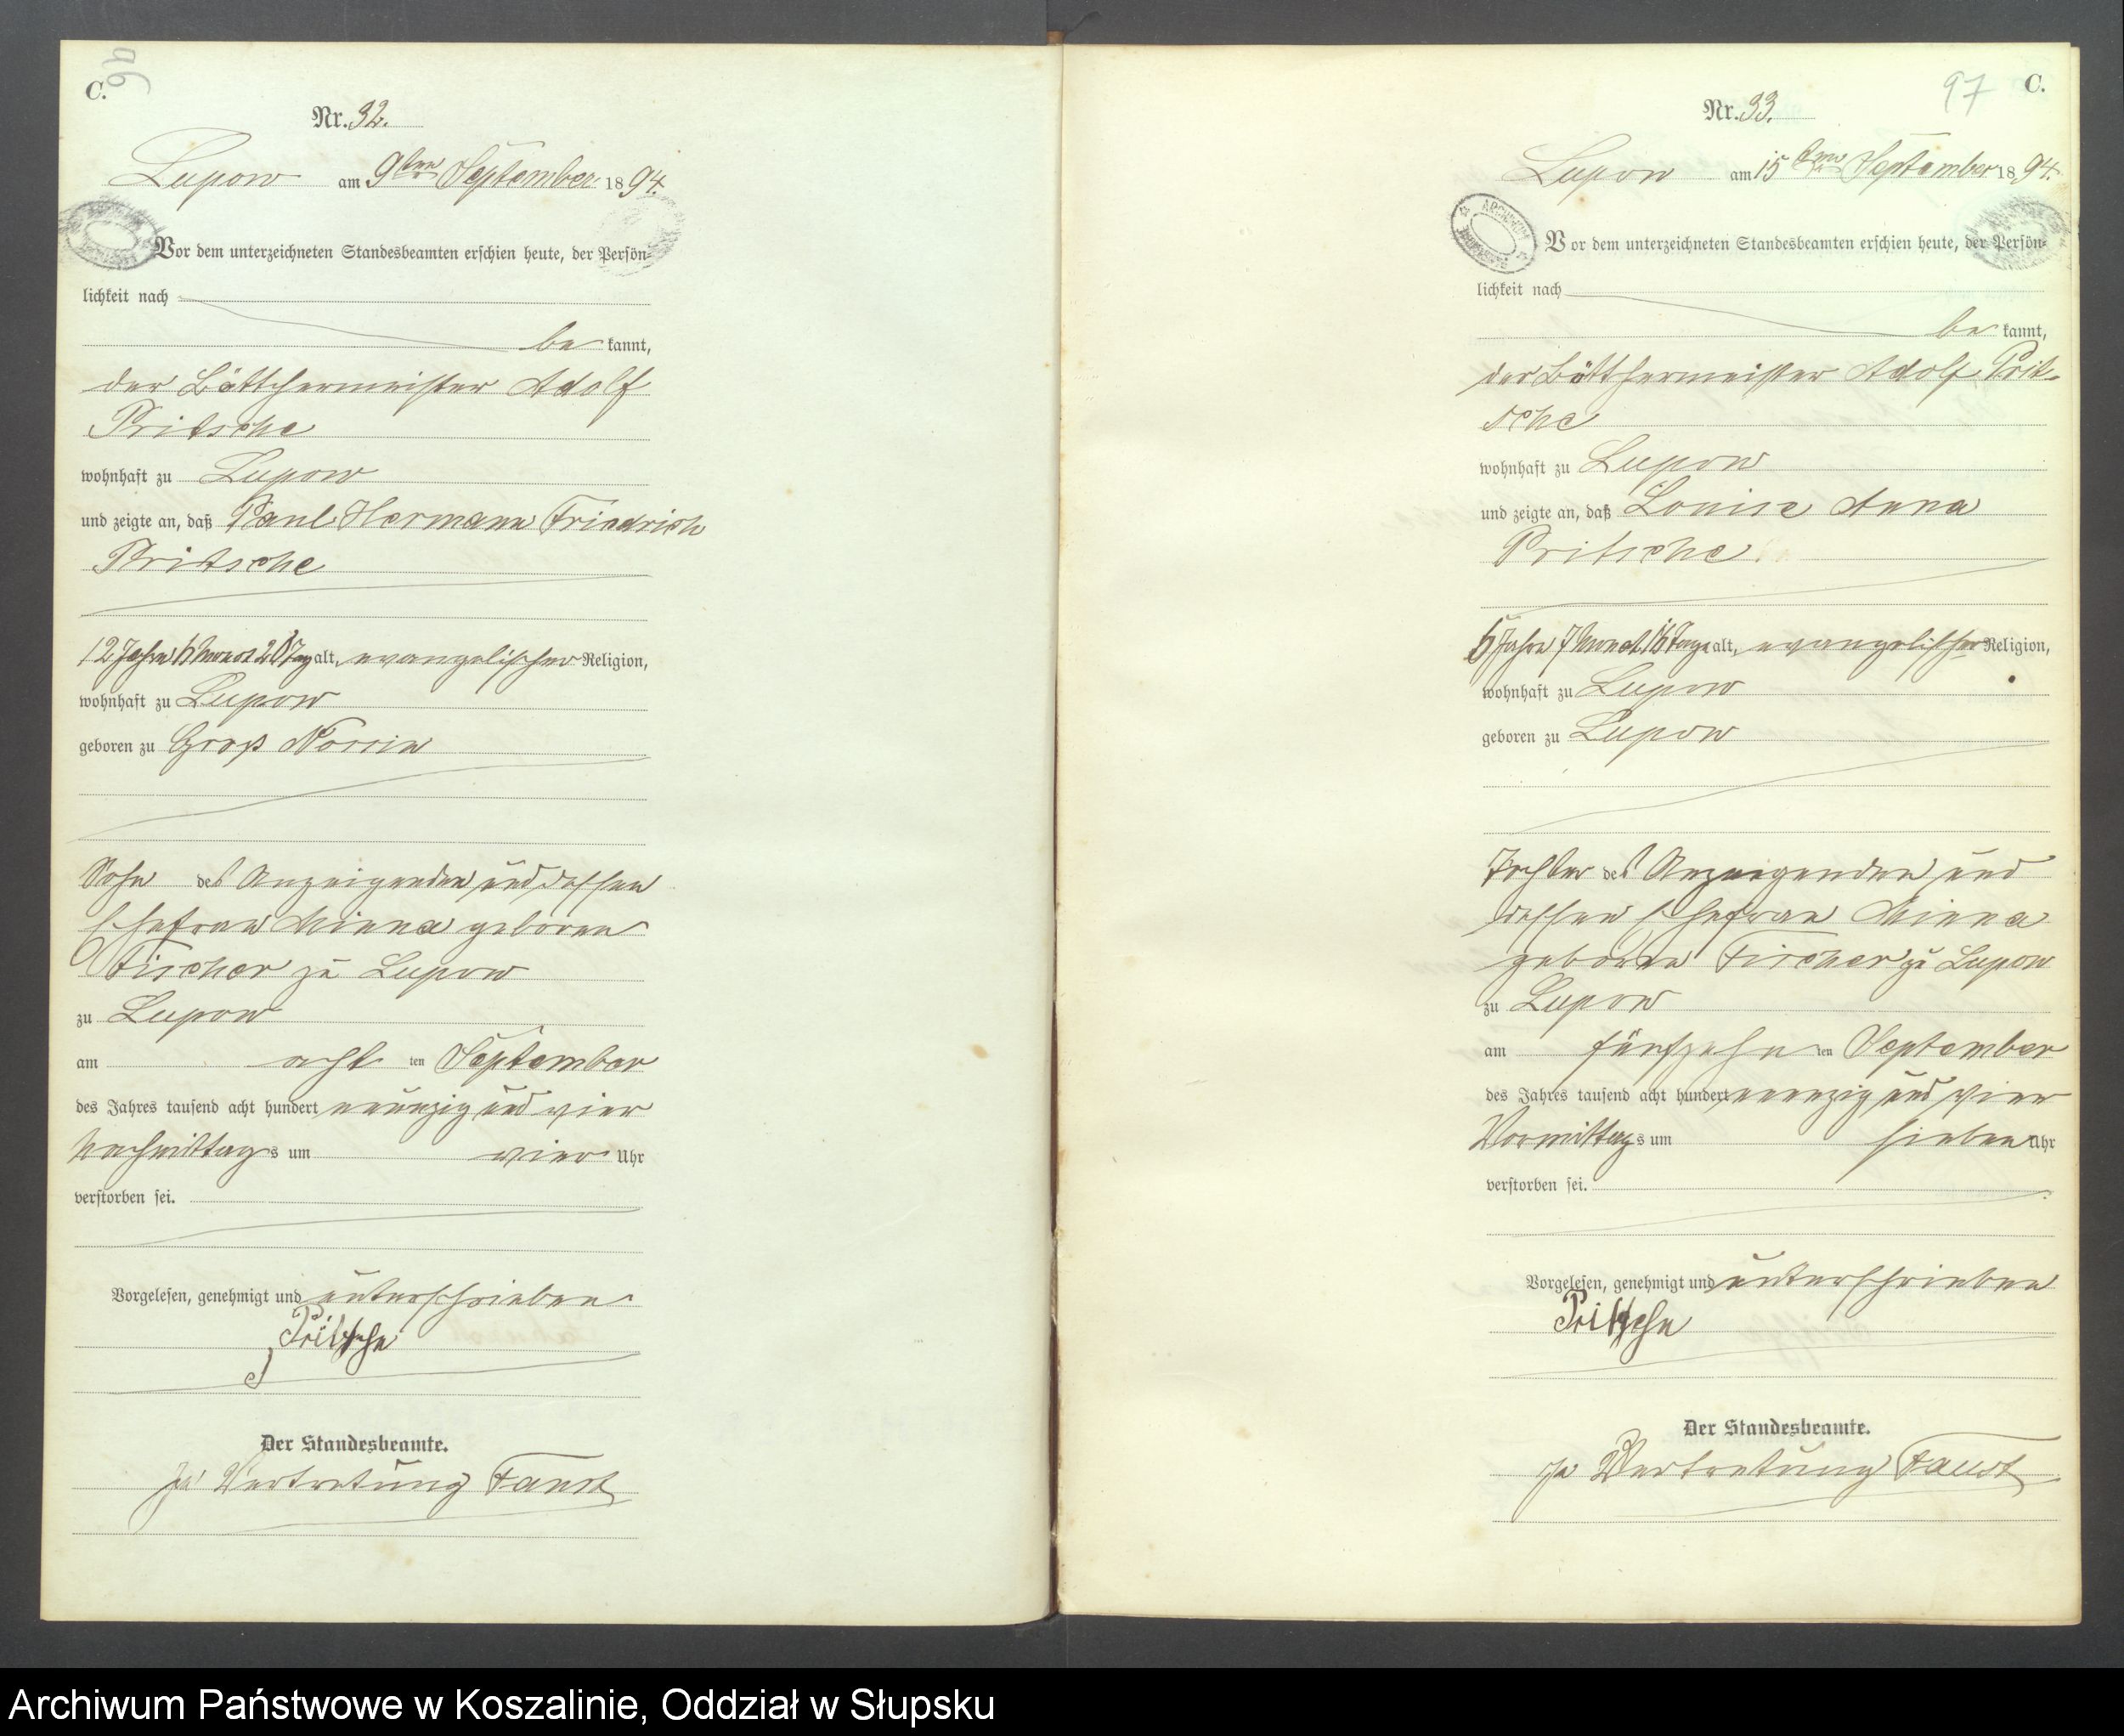 C.
96
Nr. 32.
Lupow am 9ten September 1894.
Vor dem unterzeichneten Standesbeamten erschien heute, der Persön-
lichkeit nach
be kannt,
der Böttchermeister Adolf
Pritsche
wohnhaft zu Lupow
und zeigte an, daß Paul Hermann Friedrich
Pritsche
12 Jahre 6 Monat 20 Tag alt, evangelischer Religion,
wohnhaft zu Lupow
geboren zu Groß Nossin
Sohn des Anzeigenden und dessen
Ehefrau Minna geboren
Fischer zu Lupow
zu Lupow
am acht ten September
des Jahres tausend acht hundert neunzig und vier
Nachmittags um vier Uhr
verstorben sei.
Vorgelesen, genehmigt und unterschrieben
Pritsche
Der Standesbeamte.
In Vertretung Faust
97
C.
Nr. 33.
Lupow am 15ten September 1894.
Vor dem unterzeichneten Standesbeamten erschien heute, der Persön-
lichkeit nach
be kannt,
der Böttchermeister Adolf Prit-
sche
wohnhaft zu Lupow
und zeigte an, daß Louise Anna
Pritsche
5 Jahre 7 Monat 16 Tage alt, evangelischer Religion,
wohnhaft zu Lupow
geboren zu Lupow
Tochter des Anzeigenden und
dessen Ehefrau Minna
geboren Fischer zu Lupow
zu Lupow
am fünfzehn ten September
des Jahres tausend acht hundert neunzig und vier
Vormittags um sieben Uhr
verstorben sei.
Vorgelesen, genehmigt und unterschrieben
Pritsche
Der Standesbeamte.
In Vertretung Faust
Archiwum Państwowe w Koszalinie, Oddział w Słupsku